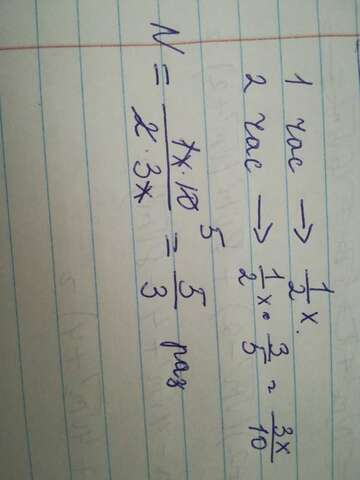 1 час → 1/2 x.
2 час → 1/2 x · 3/5 = 3x/10
N = 1x·10 5/2·3x = 5/3 раз